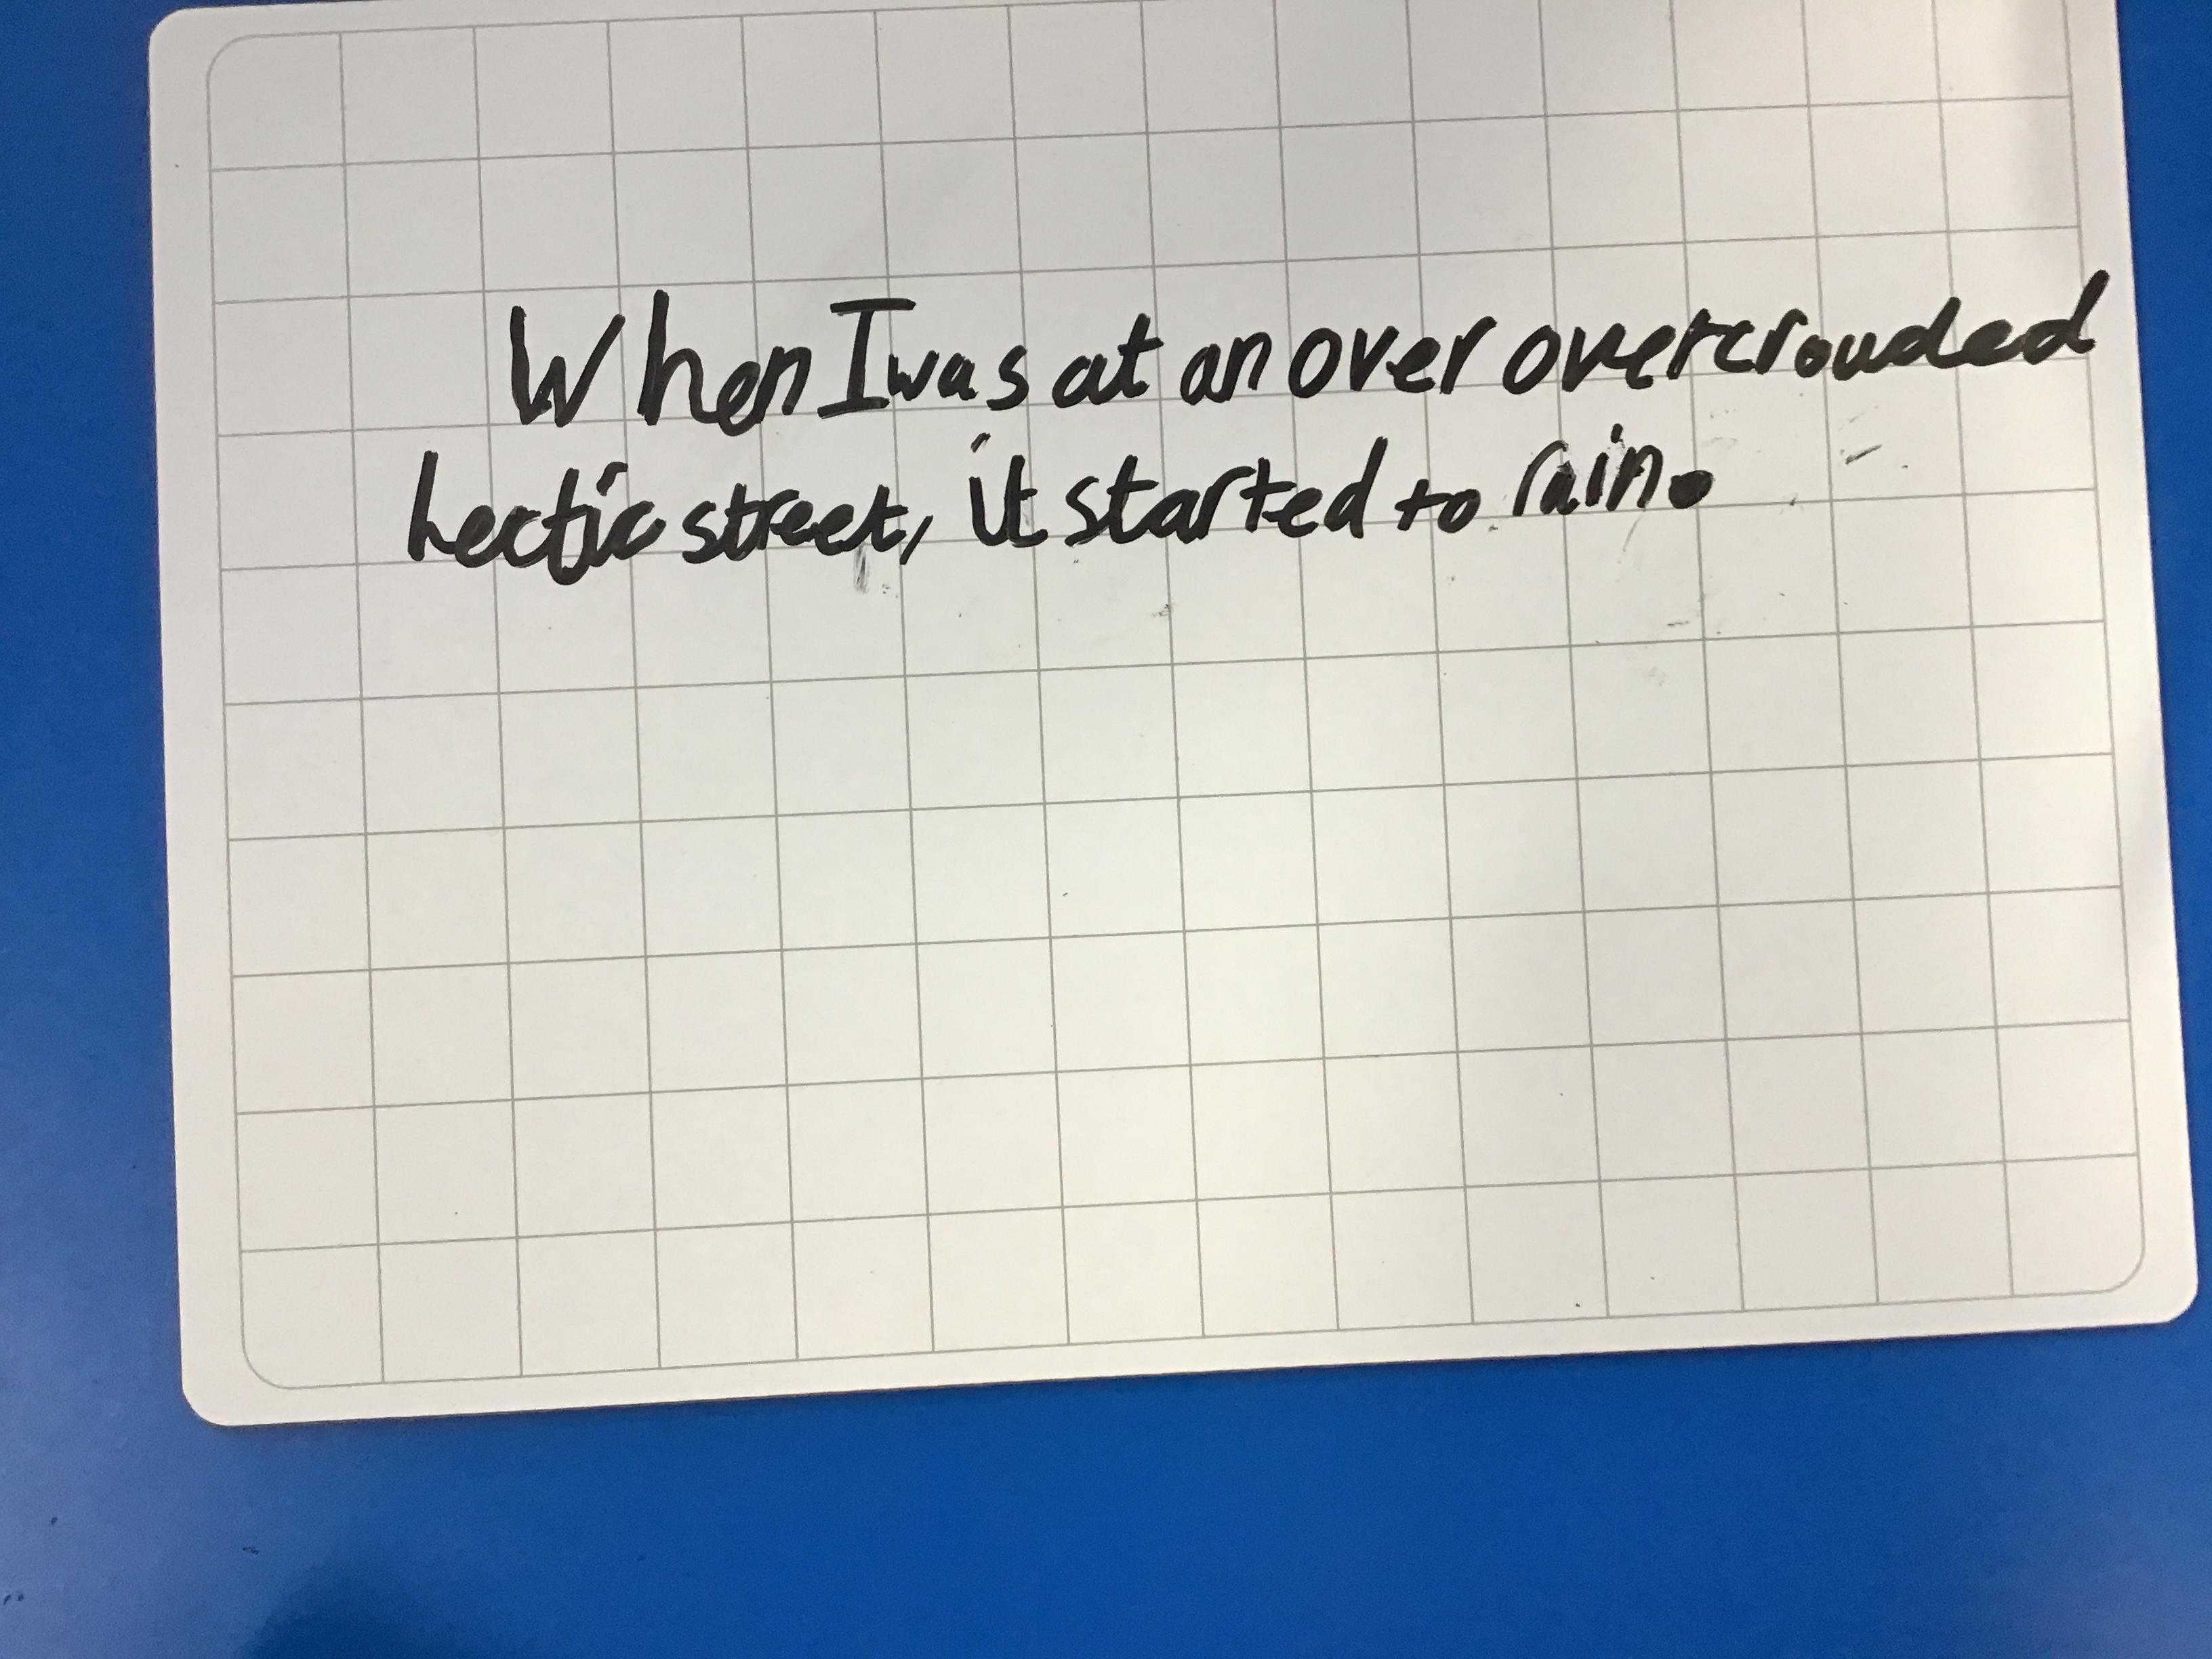 When I was at an over overcrouded
hectic street, it started to rain.